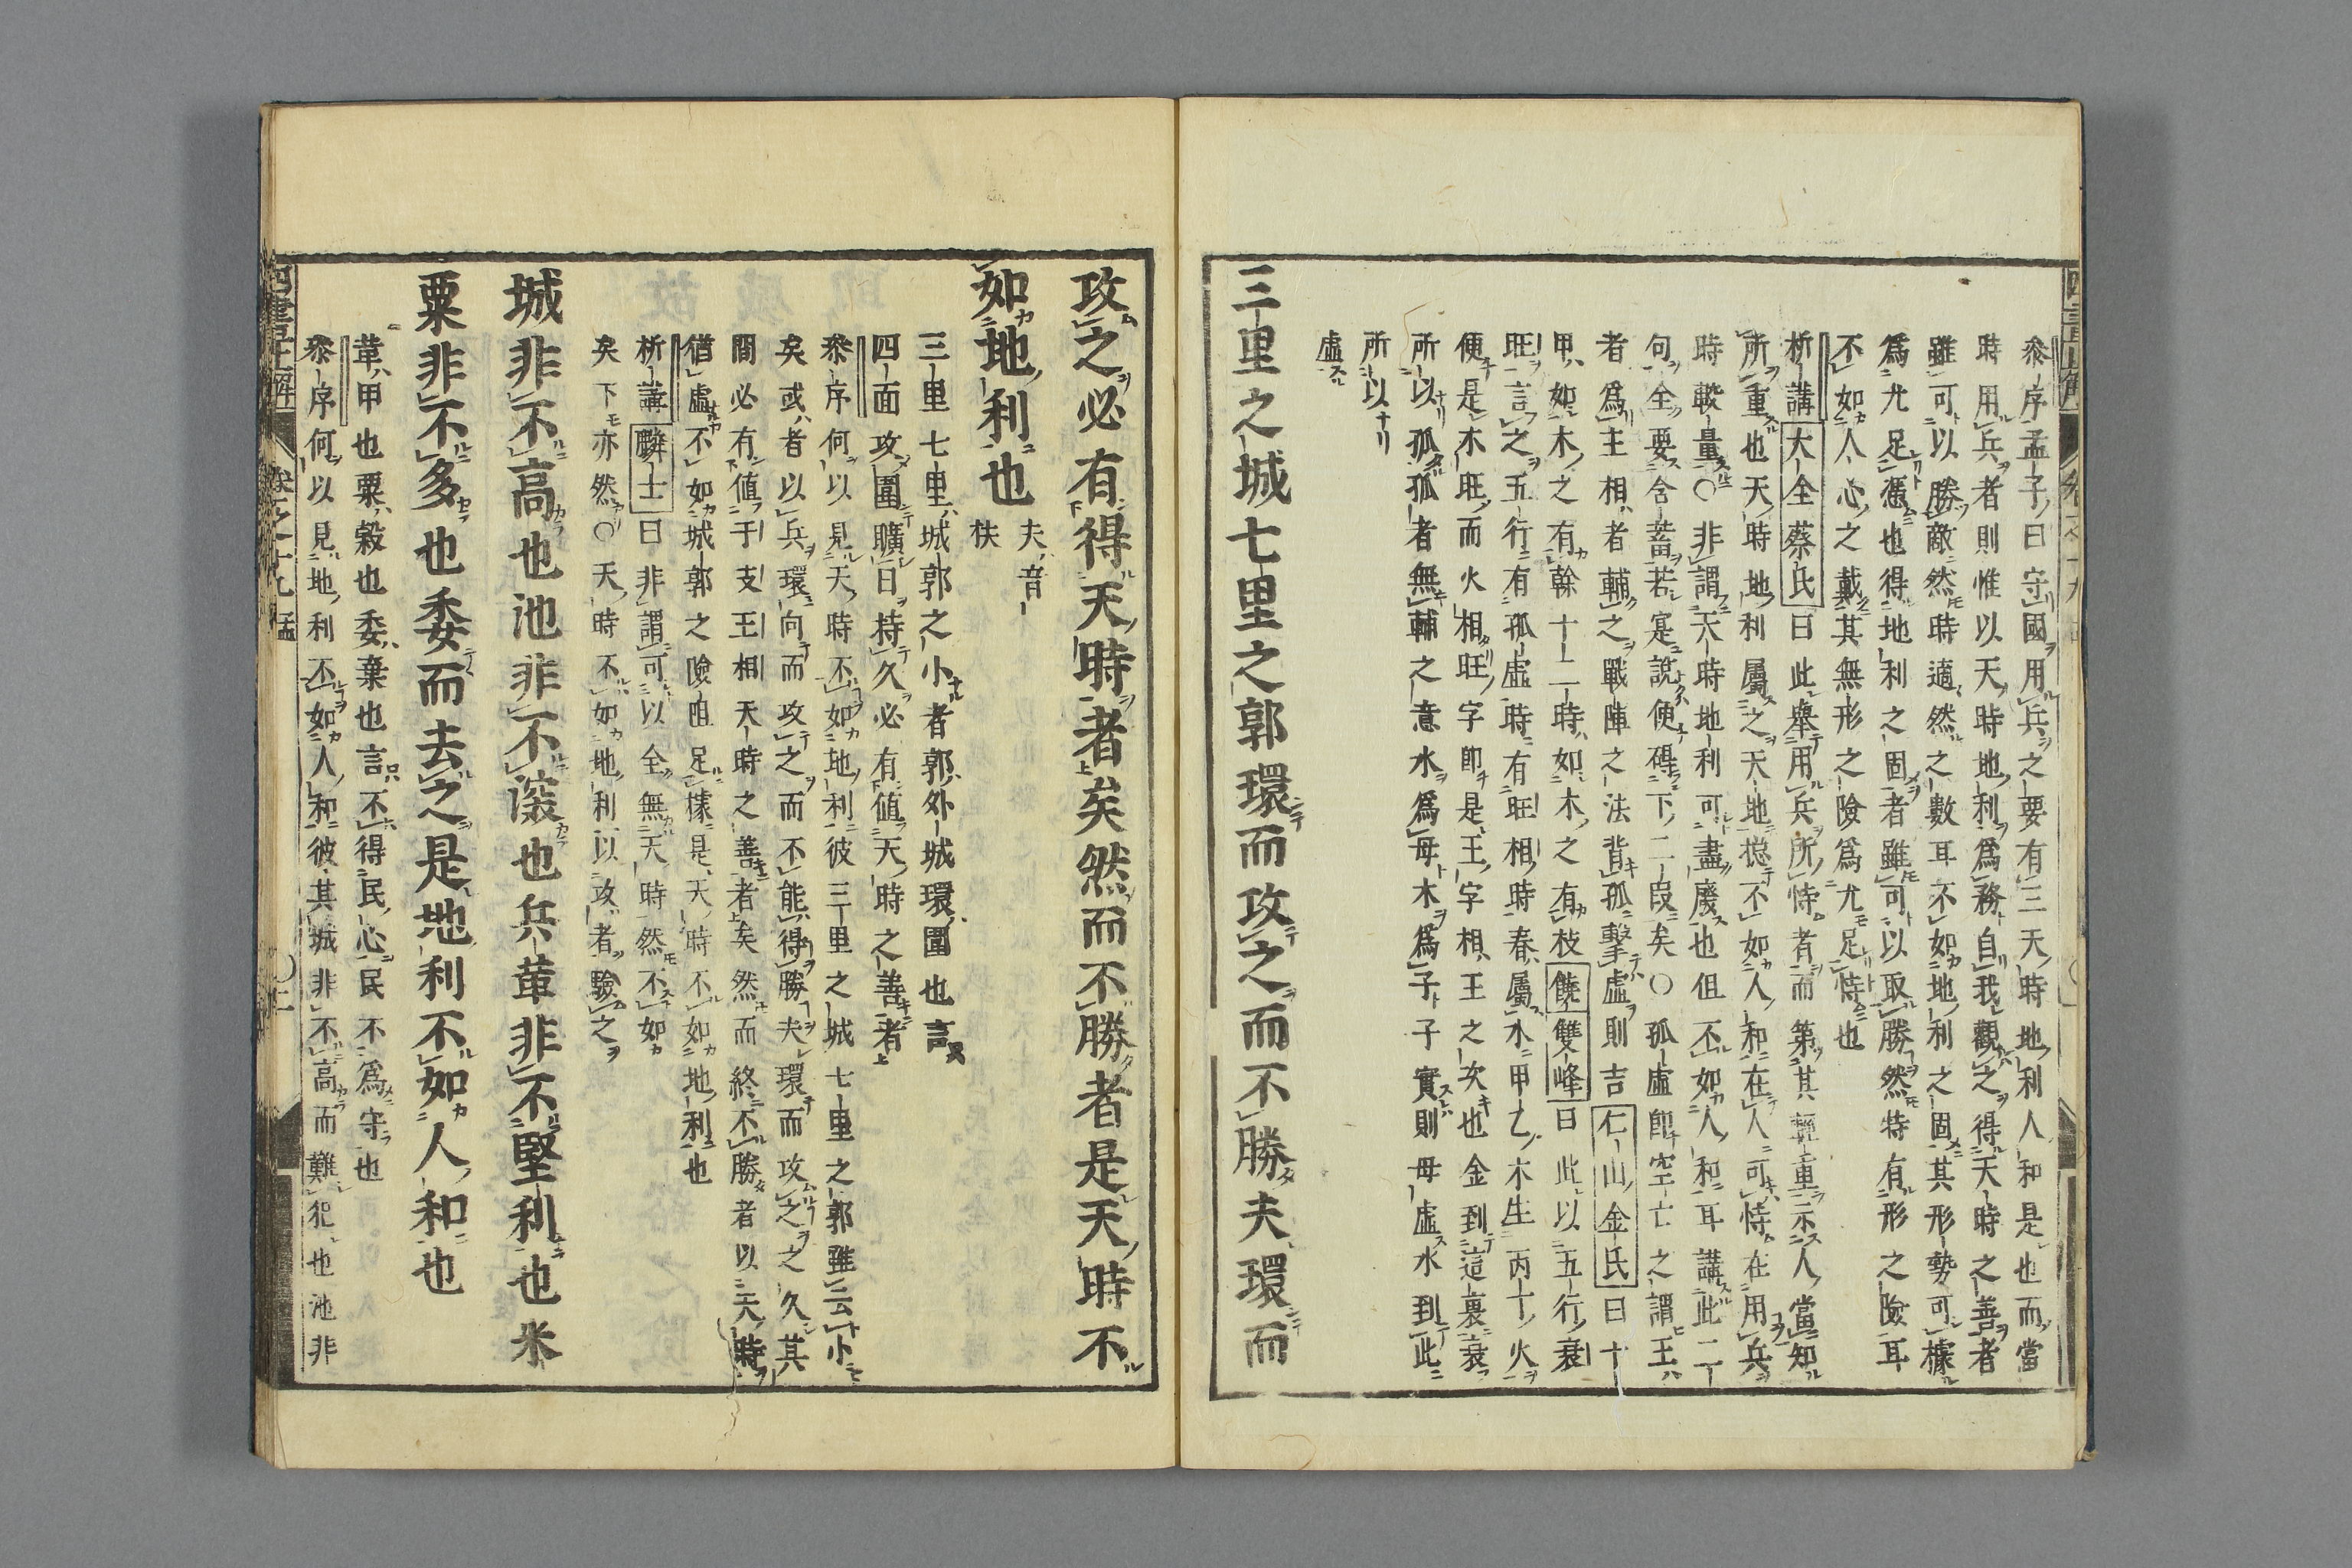 叅序孟子曰守國用兵之要有三天時地利人和是也而當
時用兵者則惟以天時地利爲務自我觀之得天時之善者
雖可以勝敵然時適然之數耳不如地利之固其形勢可據
爲尤足憑也得地利之固者雖可以取勝然特有形之險耳
不如人心之戴其無形之險爲尤足恃也
析講大全蔡氏曰此舉用兵所恃者而第其輕重示人當知
所重也天時地利屬之天地揔不如人和在人可恃在用兵
時較量○非謂天時地利可盡廢也但不如人和耳講此二
句全要含蓄若寔說便碍下二段矣○孤虛卽空亡之謂王
者爲主相者輔之戰陣之法背孤擊虛則吉仁山金氏曰十
甲如木之有榦十二時如木之有枝饒雙峰曰此以五行衰
旺言之五行有孤虛時有旺相時春屬木甲乙木生丙丁火
便是木旺而火相旺字卽是王字相王之次也金到這裏衰
所以孤孤者無輔之意水爲母木爲子子實則母虛水到此
所以
虛
三里之城七里之郭環而攻之而不勝夫環而
攻之必有得天時者矣然而不勝者是天時不
如地利也
夫音
枎
三里七里城郭之小者郭外城環圍也言
四面攻圍曠日持久必有値天時之善者
叅序何以見天時不如地利彼三里之城七里之郭雖云小
矣或者以兵環向而攻之而不能得勝夫環而攻之之久其
間必有値于支王相天時之善者矣然而終不勝者以天時
猶虛不如城郭之險阻足據是天時不如地利也
析講麟士曰非謂可以全無天時然不如
矣下亦然○天時不如地利以攻者驗之
城非不高也池非不深也兵革非不堅利也米
粟非不多也委而去之是地利不如人和也
革甲也粟穀也委棄也言不得民心民不爲守也
叅序何以見地利不如人和彼其城非不高而難犯也池非